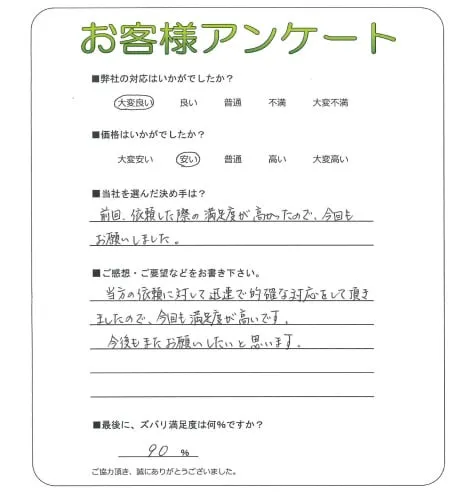 お客様アンケート
■弊社の対応はいかがでしたか？
大変良い 良い 普通 不満 大変不満
■価格はいかがでしたか？
大変安い 安い 普通 高い 大変高い
■当社を選んだ決め手は？
前回、依頼した際の満足度が高かったので、今回も
お願いしました。
■ご感想・ご要望などをお書き下さい。
当方の依頼に対して迅速で的確な対応をして頂き
ましたので、今回も満足度が高いです。
今後もまたお願いしたいと思います。
■最後に、ズバリ満足度は何％ですか？
90 ％
ご協力頂き、誠にありがとうございました。